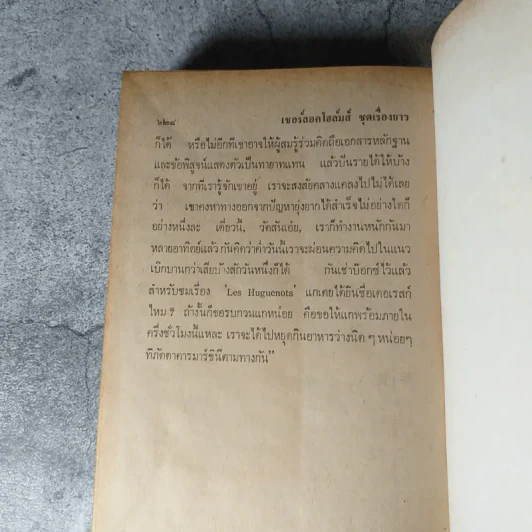 ๖๒๘ เชอร์ลอคโฮล์มส์ ชุดเรื่องยาว
ก็ได้ หรือไม่อีกทีเขาอาจให้ผู้สมรู้ร่วมคิดถือเอกสารหลักฐาน
และข้อพิสูจน์แสดงตัวเป็นทายาทแทน แล้วปันรายได้ให้บ้าง
ก็ได้ จากที่เรารู้จักเขาอยู่ เราจะสงสัยคลางแคลงไปไม่ได้เลย
ว่า เขาคงหาทางออกจากปัญหายุ่งยากได้สำเร็จไม่อย่างใดก็
อย่างหนึ่งละ เดี๋ยวนี้, วัตสันเอ๋ย, เราก็ทำงานหนักกันมา
หลายอาทิตย์แล้ว กันคิดว่าค่ำวันนี้เราจะผ่อนความคิดไปในแนว
เบิกบานกว่าเสียบ้างสักวันหนึ่งก็ได้ กันเช่าบ๊อกซ์ไว้แล้ว
สำหรับชมเรื่อง 'Les Huguenots' แกเคยได้ยินชื่อเดอเรสก์
ไหม ? ถ้างั้นก็ขอรบกวนแกหน่อย คือขอให้แกพร้อมภายใน
ครึ่งชั่วโมงนี้แหละ เราจะได้ไปหยุดกินอาหารว่างนิด ๆ หน่อยๆ
ที่ภัตตาคารมาร์ซินีตามทางกัน”